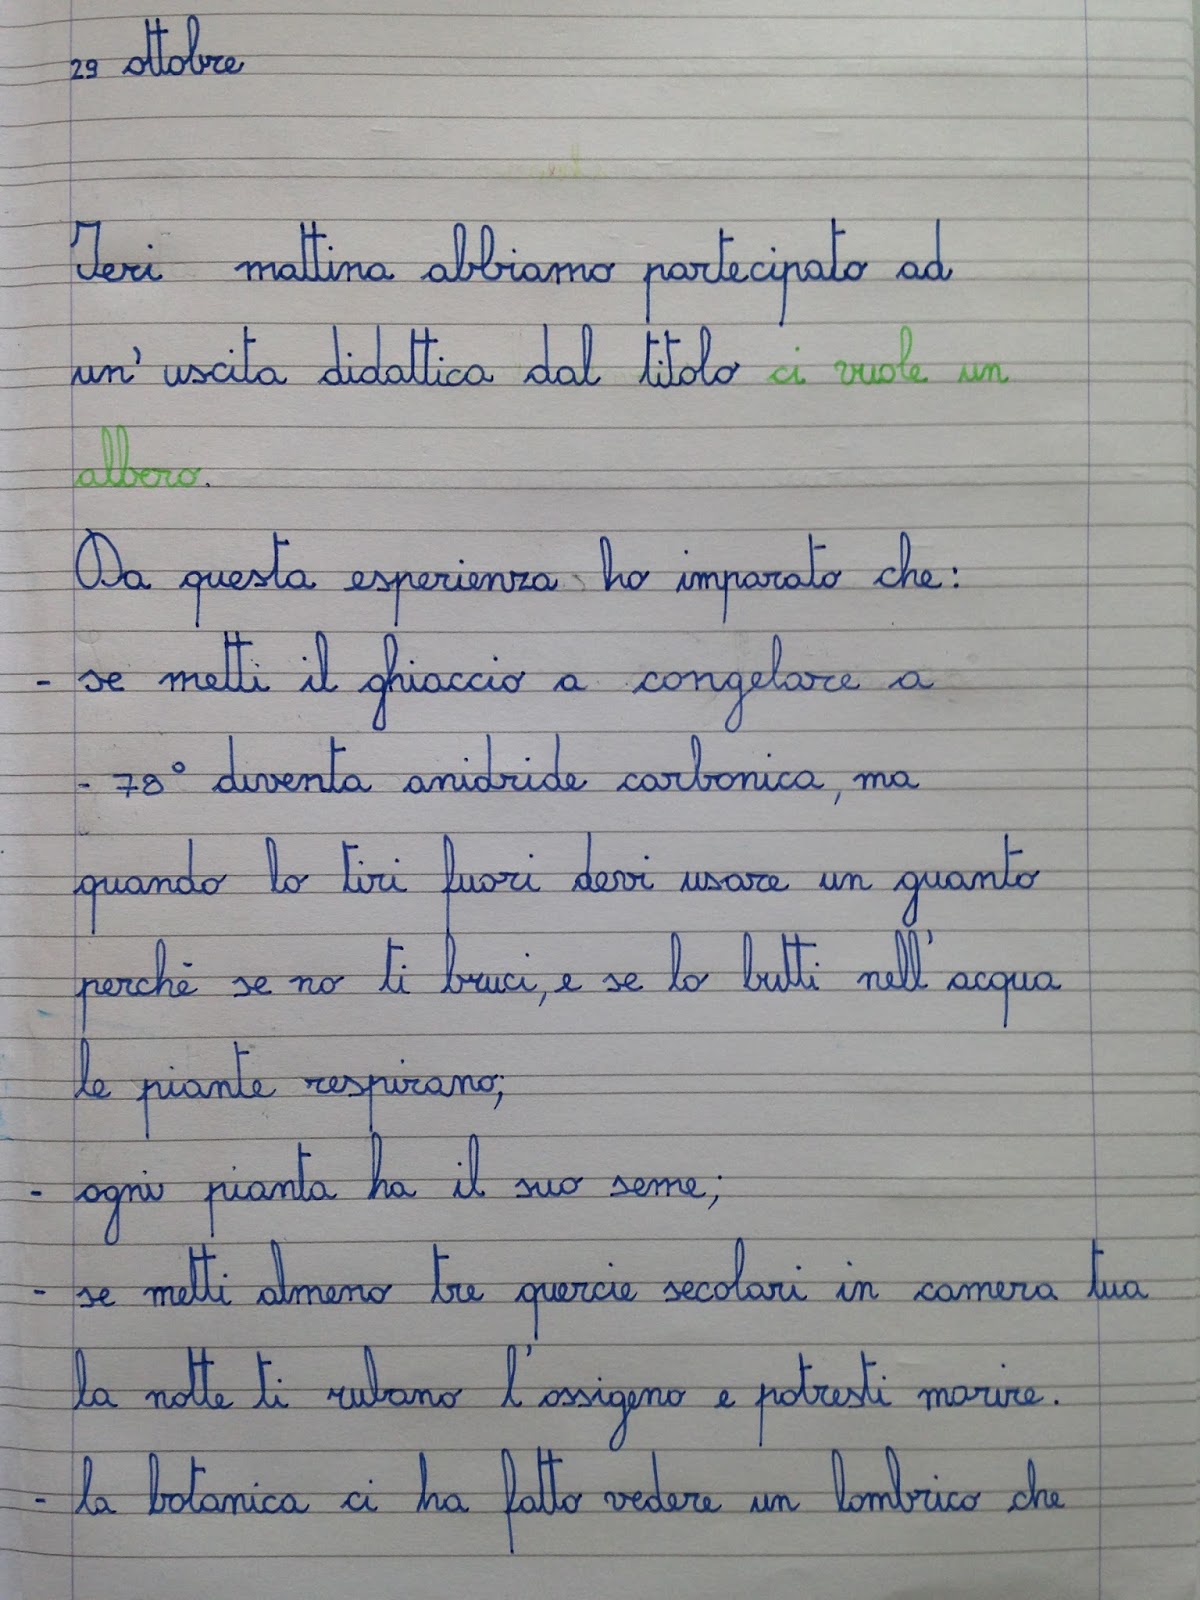 29 ottobre
Ieri mattina abbiamo partecipato ad
un'uscita didattica dal titolo ci vuole un
albero.
Da questa esperienza ho imparato che:
- se metti il ghiaccio a congelare a
- 78° diventa anidride carbonica, ma
quando lo tiri fuori devi usare un guanto
perché se no ti bruci, e se lo butti nell'acqua
le piante respirano;
- ogni pianta ha il suo seme;
- se metti almeno tre quercie secolari in camera tua
la notte ti rubano l'ossigeno e potresti morire.
- la botanica ci ha fatto vedere un lombrico che